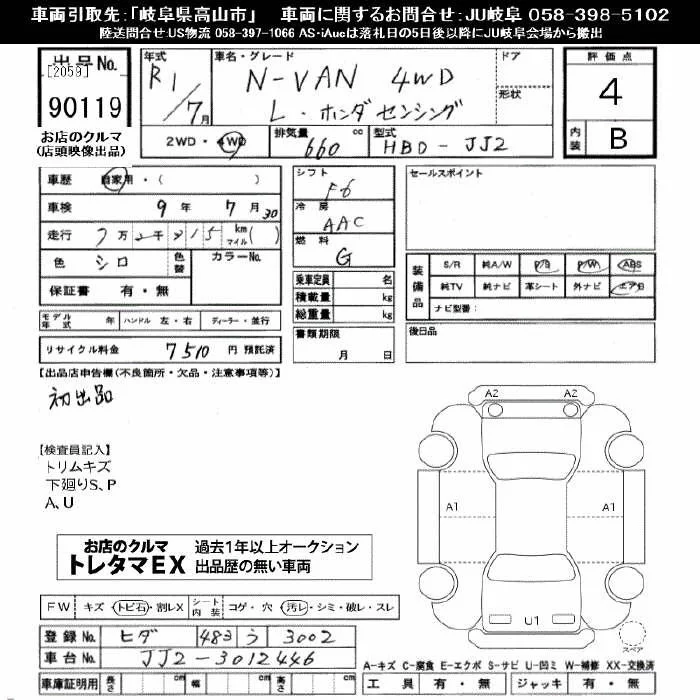 車両引取先:「岐阜県高山市」 車両に関するお問合せ:JU岐阜 058-398-5102
陸送問合せ:US物流 058-397-1066 AS・iAucは落札日の5日後以降にJU岐阜会場から搬出
出品No.
[2059]
90119
お店のクルマ
(店頭映像出品)
年式
R1/7月
車名・グレード
N-VAN 4WD
L・ホンダセンシング
ドア
形状
評価点
4
内装
B
2WD・4WD
排気量
660 cc
型式
HBD-JJ2
車歴 自家用・( )
車検 9年 7月30
走行 7万2千915 km マイル( )
色 シロ 色替 カラーNo.
保証書 有・無
シフト
F6
冷房
AAC
燃料
G
乗車定員 名
積載量 kg
総重量 kg
書類期限
月 日
セールスポイント
装備品
S/R 純A/W P/S P/W ABS
純TV 純ナビ 革シート 外ナビ エアB
ナビ型番:
後日品
モデル年式 年 ハンドル 左・右 ディーラー・並行
リサイクル料金 7510 円 預託済
【出品店申告欄(不良箇所・欠品・注意事項等)】
初出品
【検査員記入】
トリムキズ
下廻りS、P
A、U
A2 A2
A1 A1
U1
スペア
お店のクルマ
トレタマEX
過去1年以上オークション
出品歴の無い車両
FW キズ・トビ石・割レX シート内装 コゲ・穴 汚レ・シミ・破レ・スレ
登録No. ヒダ 483 う 3002
車台No. JJ2-3012446
車庫証明用 長さ cm 幅 cm 高さ cm
A-キズ C-腐食 E-エクボ S-サビ U-凹ミ W-補修 XX-交換済
工具 有・無 ジャッキ 有・無